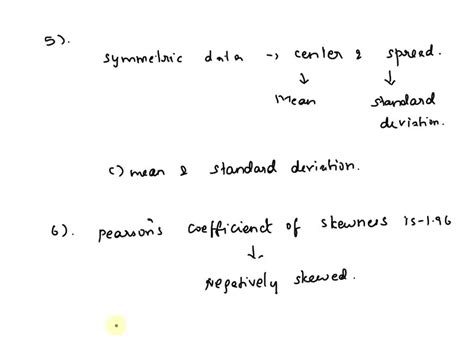 5).
symmetric data → center & spread.
↓ ↓
Mean standard
deviation.
c) mean & standard deviation.
6). pearson's coefficienct of skewness is -1.96
↓
Negatively skewed.